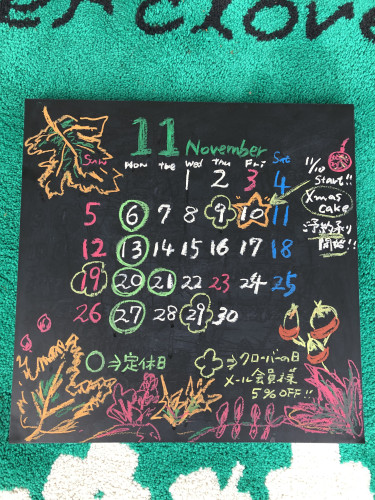 er clover
11 November
Sun Mon tue Wed thu Fri Sat
1 2 3 4
5 6 7 8 9 10 11
12 13 14 15 16 17 18
19 20 21 22 23 24 25
26 27 28 29 30
11/10
Start!!
Xmas
cake
ご予約承り
開始!!
○⇒定休日
⇒クローバーの日
メール会員様
5%OFF!!